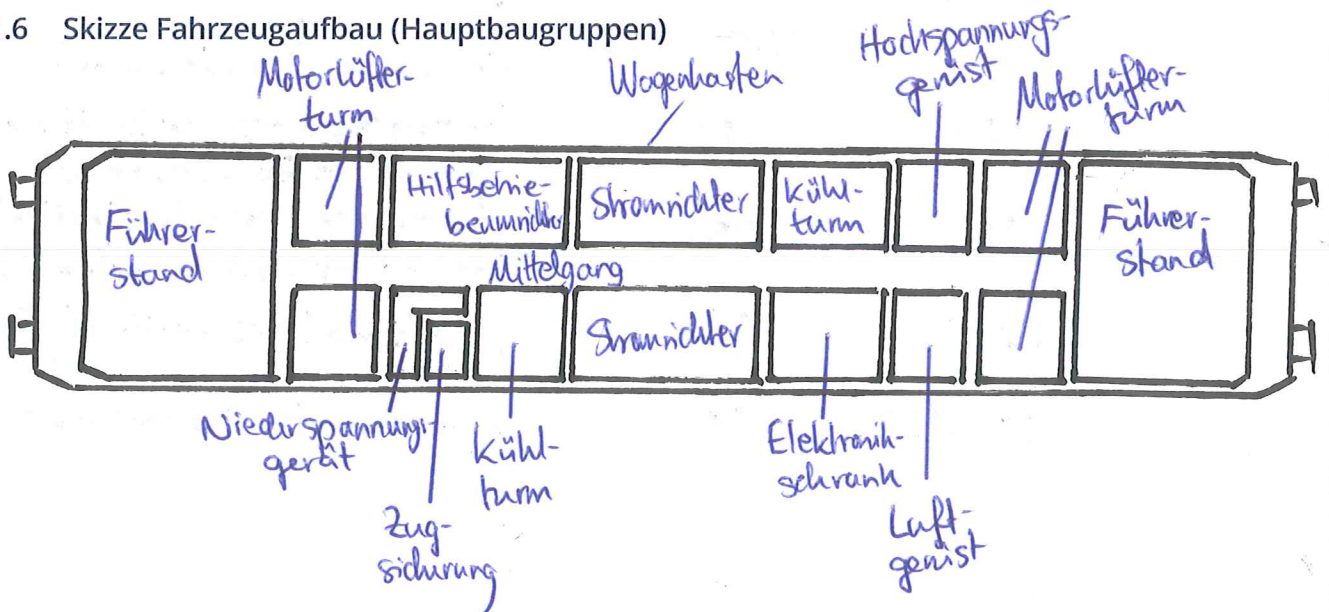 .6 Skizze Fahrzeugaufbau (Hauptbaugruppen)
Motorlüfter-
turm
Wagenkasten
Hochspannungs-
gerüst
Motorlüfter-
turm
Führer-
stand
Hilfsbetrie-
beumrichter
Stromrichter
Kühl-
turm
Führer-
stand
Mittelgang
Stromrichter
Niederspannungs-
gerät
Zug-
sicherung
Kühl-
turm
Elektronik-
schrank
Luft-
gerüst